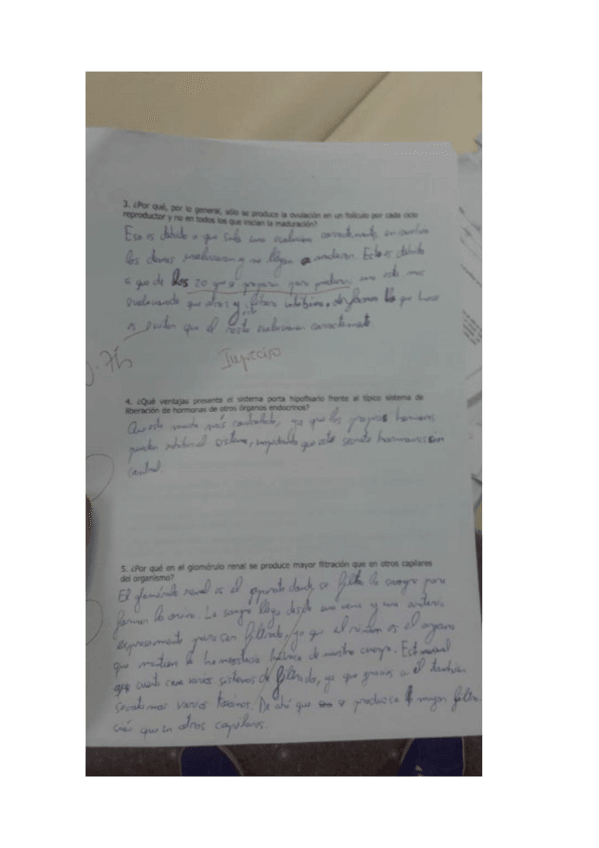 3. ¿Por qué, por lo general, sólo se produce la ovulación en un folículo por cada ciclo
reproductor y no en todos los que inician la maduración?
Eso es debido a que solo uno evoluciona correctamente, en cambio
los demas involucionan y no llegan a madurar. Esto es debido
a que de los 20 que se preparan para madurar, uno esta mas
evolucionado que otros y libera inhibina, de forma que hace
este
es evitar que el resto evolucionen correctamente.
Impreciso
4. ¿Qué ventajas presenta el sistema porta hipofisario frente al típico sistema de
liberación de hormonas de otros órganos endocrinos?
Que este mucho más controlado, ya que las propias hormonas
pueden inhibir al sistema, impidiendo que este secrete hormonas sin
control.
5. ¿Por qué en el glomérulo renal se produce mayor filtración que en otros capilares
del organismo?
El glomérulo renal es el aparato donde se filtra la sangre para
formar la orina. La sangre llega desde una vena y una arteria
expresamente para ser filtrada, ya que el riñon es el organo
que mantiene la homeostasis hídrica de nuestro cuerpo. Este
cuenta con varios sistemas de filtrado, ya que gracias a él tambien
secretamos varias toxinas. De ahí que se produzca mayor filtra
ción que en otros capilares.